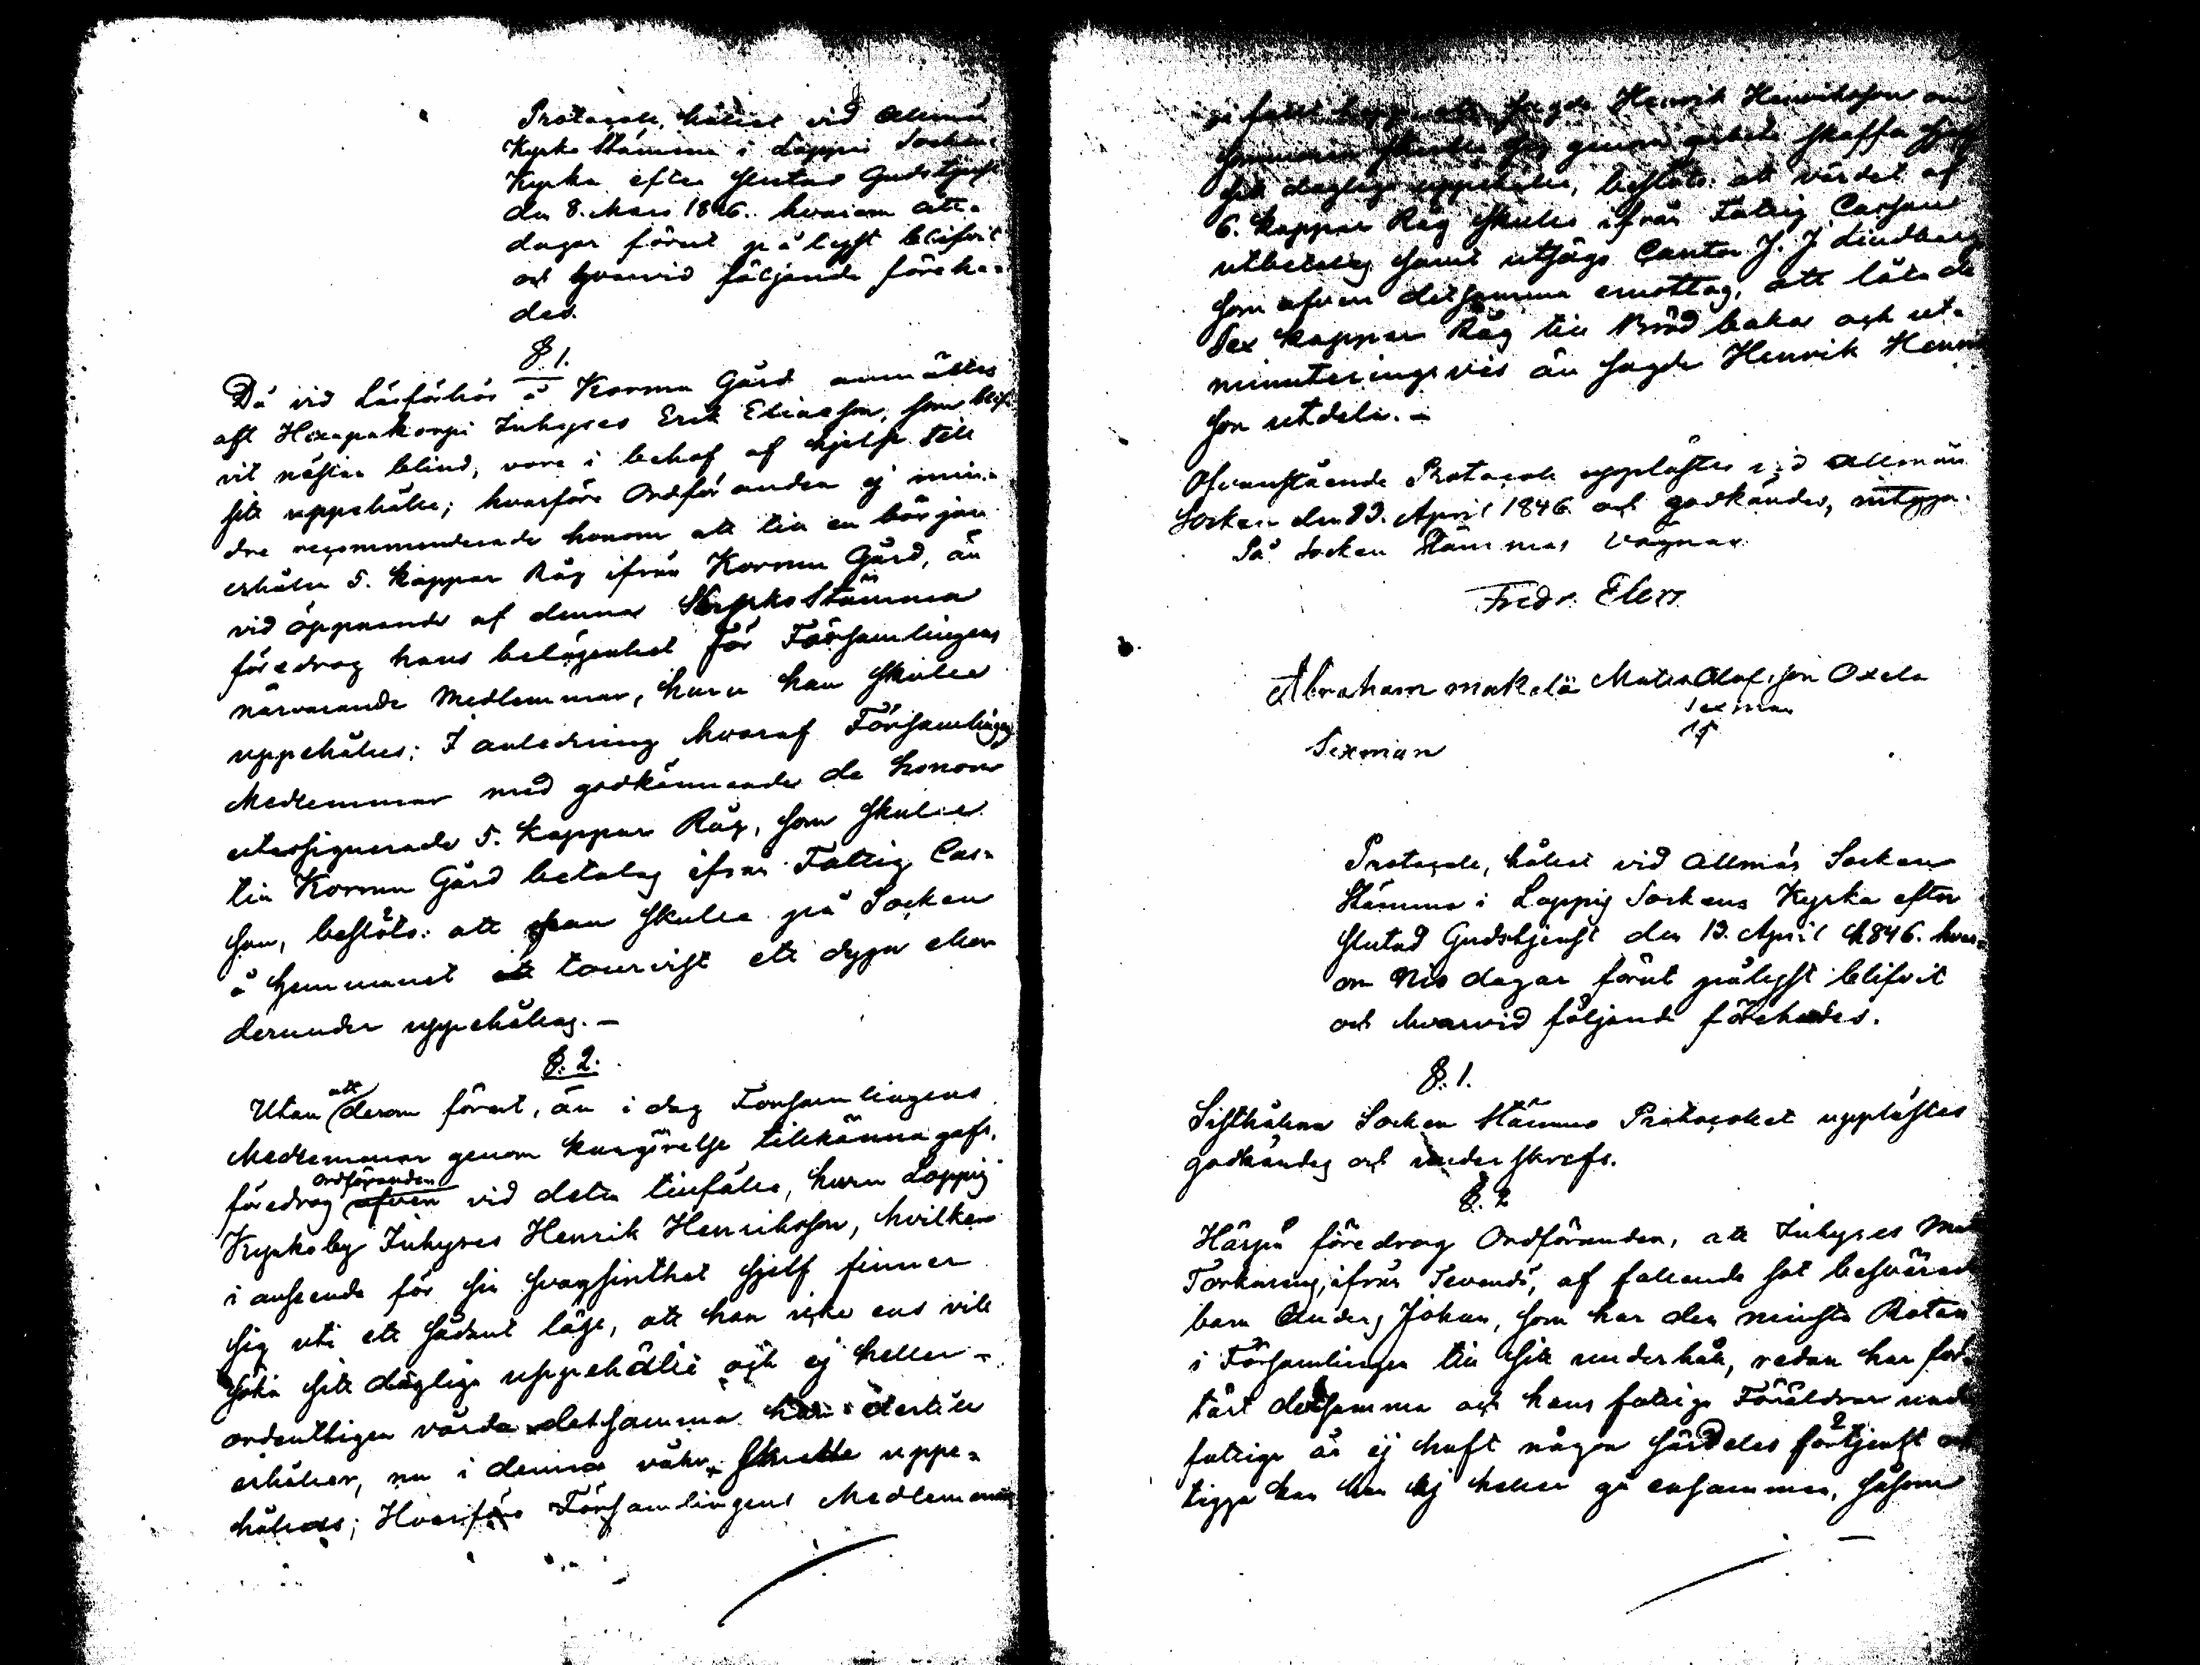 Protocoll, hållit vid Allmän
Kyrko Stämma i Lappi Sockens
Kyrka efter slutad Gudstjenst
den 8. Mars 1846. hvarom åtta
dagar förut pålyst blifvit
och hvarvid följande föreha-
des.
§. 1.
Då vid Läsförhör å Korma Gård anmältes
att Hixapakorpi Inhyses Erik Eliasson, som blif-
vit nästan blind, vore i behof af hjelp till
sitt uppehälle; hvarföre Ordföranden ej min-
dre recommenderade honom att till en början
erhålla 5. kappar Råg ifrån Korma Gård, än
vid öppnande af denna Kyrko Stämma
föredrog hans belägenhet för Församlingens
närvarande Medlemmar, huru han skulle
uppehållas: I anledning hvaraf Församlingens
Medlemmar med godkännande de honom
utassignerade 5. kappar Råg, som skulle
till Korma Gård betalas ifrån Fattig Cas-
san, beslöts: att han skulle på Socken
å hemmanet tourvist ett dygn eller
derunder uppehållas. –
§. 2.
Utan att derom förut, än i dag Församlingens
Medlemmar genom kungörelse tillkänna gafs,
föredrog Ordföranden vid detta tillfälle, huru Lappi
Kyrkoby Inhyses Henrik Henriksson, hvilken
i anseende för sin svagsinthet sjelf finner
sig uti ett sådant läge, att han icke ens vill
söka sitt dagliga uppehälle och ej heller
ordentligen vårda detsamma han dertill
erhåller, nu i denna våhr skulle uppe-
hållas; Hvarföre Församlingens Medlemmar
sagde Henrik Henriksson om
sommaren skulle genom arbete skaffa
sitt dagliga uppehälle, beslöts: att värdet af
6. kappar Råg skulle ifrån Fattig Cassan
utbetalas samt utsågs Cantor J. J. Lindberg
som äfven detsamma emottog, att låta de
Sex kappar Råg till Bröd bakas och ut-
minuteringsvis åu sagde Henrik Henriks-
son utdela. –
Ofvanstående Protocoll upplästes vid Allmän
Socken den 13. April 1846 och godkändes, intyga.
På Socken Stämmas vägnar
Fredr. Elers
Abraham makelä Mats Olofsson Oxela
Sexman
Sexman
Protocoll, hållit vid Allmän Socken
Stämma i Lappi Sockens Kyrka efter
slutad Gudstjenst den 13. April 1846. hvar-
om Nio dagar förut pålyst blifvit
och hvarvid följande förehades.
§. 1.
Sisthållna Socken Stämmo Protocollet upplästes
godkändes och underskrefs.
§. 2
Härpå föredrog Ordföranden, att Inhyses
ifrån af fallande sot besvärade
barn Anders Johan, som har den minsta Rotan
i Församlingen till sitt underhåll, redan har för-
tärt detsamma och hans fattige Föräldrar
fattige år ej haft någon särdeles förtjenst och
tigga kan han ej heller gå ensammen, såsom